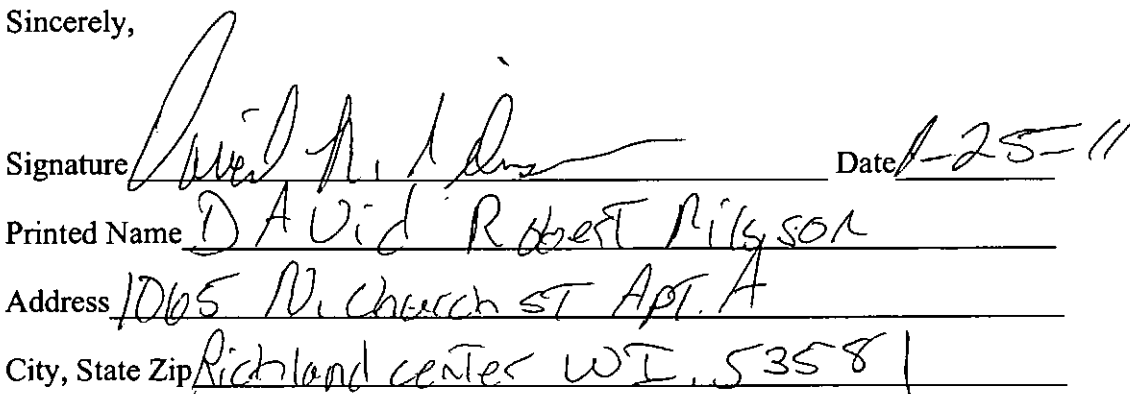 Sincerely,
Signature David R. Date 1-25-11
Printed Name DAVid Robert
Address 1065 N. Church ST APT. A
City, State Zip Richland center WI. 53581